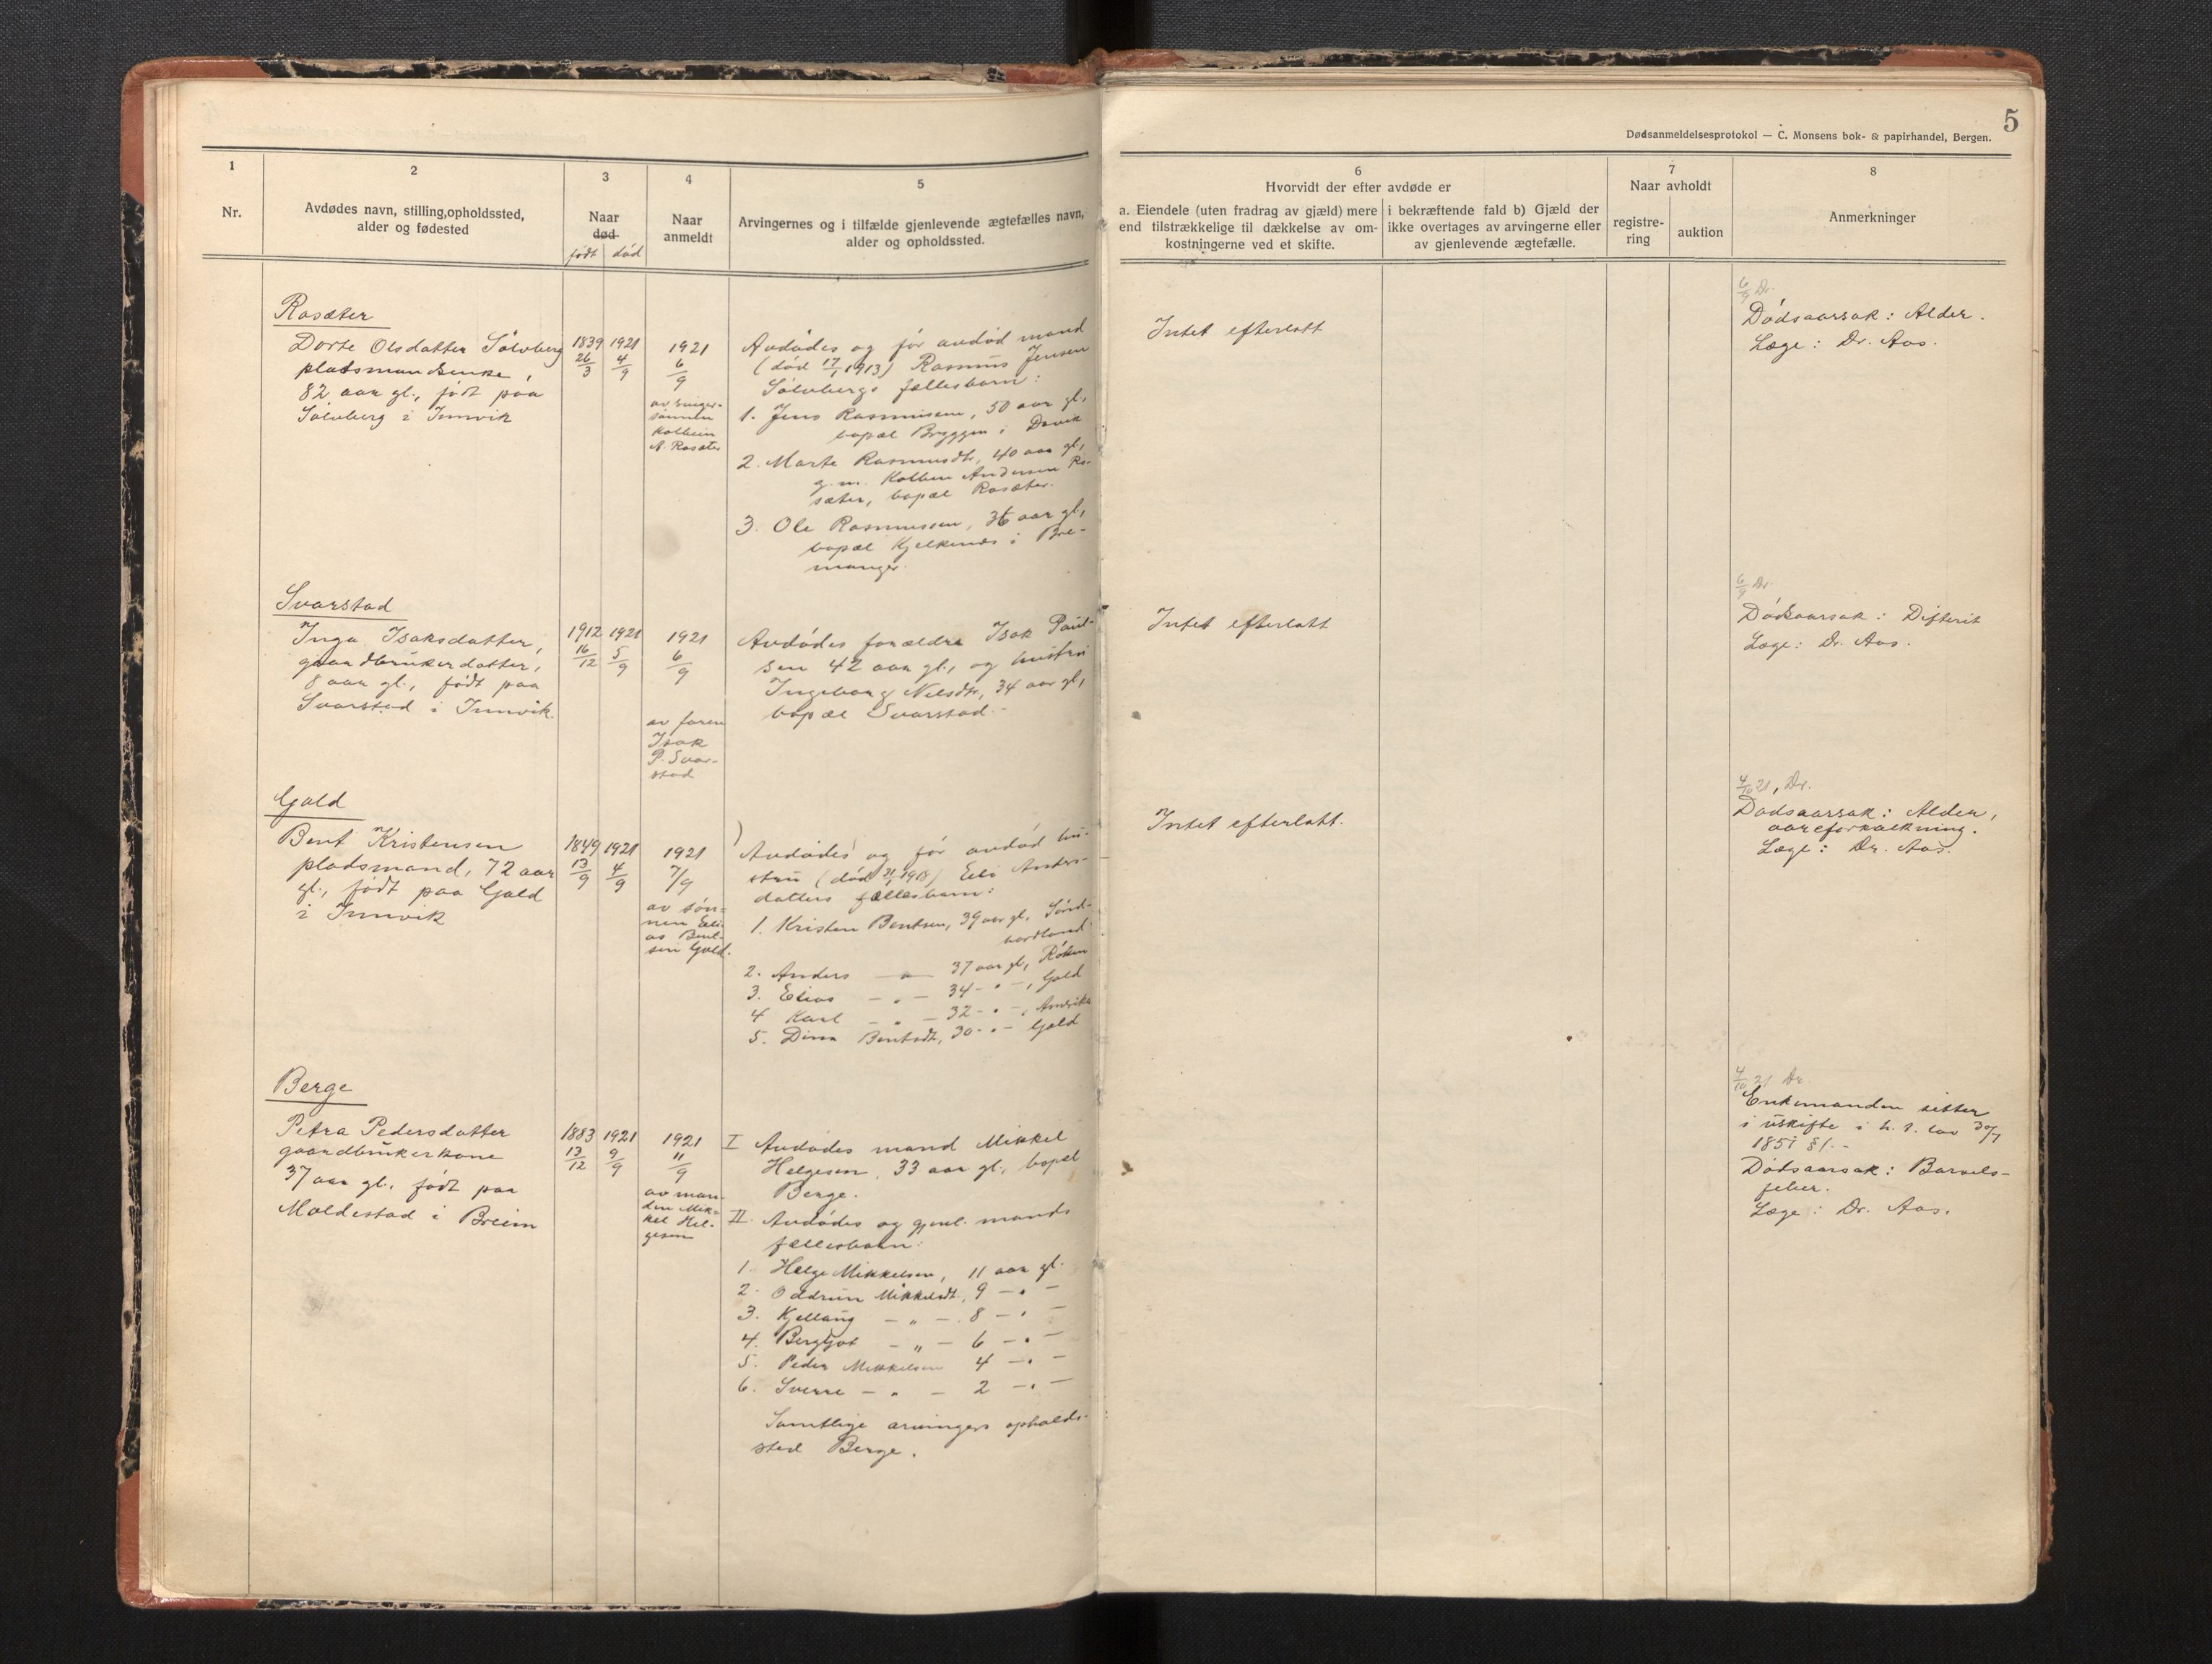 5
Dødsanmeldelsesprotokol — C. Monsens bok- & papirhandel, Bergen.
1
Nr.
2
Avdødes navn, stilling, opholdssted,
alder og fødested
3
Naar
død
født død
4
Naar
anmeldt
5
Arvingernes og i tilfælde gjenlevende ægtefælles navn,
alder og opholdssted.
6
Hvorvidt der efter avdøde er
a. Eiendele (uten fradrag av gjæld) mere
end tilstrækkelige til dækkelse av om-
kostningerne ved et skifte.
i bekræftende fald b) Gjæld der
ikke overtages av arvingerne eller
av gjenlevende ægtefælle.
7
Naar avholdt
registre-
ring
auktion
8
Anmerkninger
Rosæter
Dorte Olsdatter Sølvberg
pladsmandsenke,
82 aar gl., født paa
Sølvberg i Innvik
1839
26/3
1921
4/9
1921
6/9
av sviger-
sønnen
Kolbein
A. Rosæter
Avdødes og før avdød mand
(død 17/1 1913) Rasmus Jensen
Sølvbergs fællesbarn:
1. Jens Rasmussen, 50 aar gl,
bopæl Bryggen i Davik
2. Marte Rasmusdtr, 40 aar gl,
g. m. Kolbein Andersen Ro-
sæter, bopæl Rosæter.
3. Ole Rasmussen, 36 aar gl,
bopæl Kjelkenes i Bre-
manger.
Intet efterlatt
6/9 Dr.
Dødsaarsak: Alder.
Læge: Dr. Aas.
Svarstad
Inga Isaksdatter,
gaardbrukerdatter,
8 aar gl., født paa
Svarstad i Innvik.
1912
16/12
1921
5/9
1921
6/9
av faren
Isak
P. Svar-
stad
Avdødes forældre Isak Paul-
sen 42 aar gl., og hustru
Ingeborg Nilsdtr, 34 aar gl,
bopæl Svarstad.
Intet efterlatt
6/9 Dr.
Dødsaarsak: Difterit
Læge: Dr. Aas.
Gald
Bent Kristensen
pladsmand, 72 aar
gl., født paa Gald
i Innvik
1849
13/9
1921
4/9
1921
7/9
av søn-
nen Eli-
as Bent-
sen Gald.
Avdødes og før avdød hu-
stru (død 1918) Eli Anders-
datters fællesbarn:
1. Kristen Bentsen, 39 aar gl, Sønd-
hordland
2. Anders — " — 37 aar gl, Røken
3. Elias — " — 34 - " -, Gald
4 Karl — " — 32 - " -, Amerika
5. Dina Bentsdtr, 30 - " - Gald
Intet efterlatt.
4/10 21, Dr.
Dødsaarsak: Alder,
aareforkalkning.
Læge: Dr. Aas.
Berge
Petra Pedersdatter
gaardbrukerkone
37 aar gl., født paa
Moldestad i Breim
1883
13/12
1921
9/9
1921
11/9
av man-
den Mik-
kel Hel-
gesen
I Avdødes mand Mikkel
Helgesen, 33 aar gl, bopæl
Berge.
II. Avdødes og gjenl. mands
fællesbarn:
1. Helge Mikkelsen, 11 aar gl.
2. Oddrun Mikkelsdt. 9 — " —
3. Kjellaug — " — 8 — " —
4. Bergljot — " — 6 — " —
5. Peder Mikkelsen 4 — " —
6. Sverre — " — 2 — " —
Samtlige arvingers opholds-
sted Berge.
4/10 21 Dr.
Enkemanden sitter
i uskifte i h. t. lov 30/7
1851 § 1.-
Dødsaarsak: Barsels-
feber.
Læge: Dr. Aas.